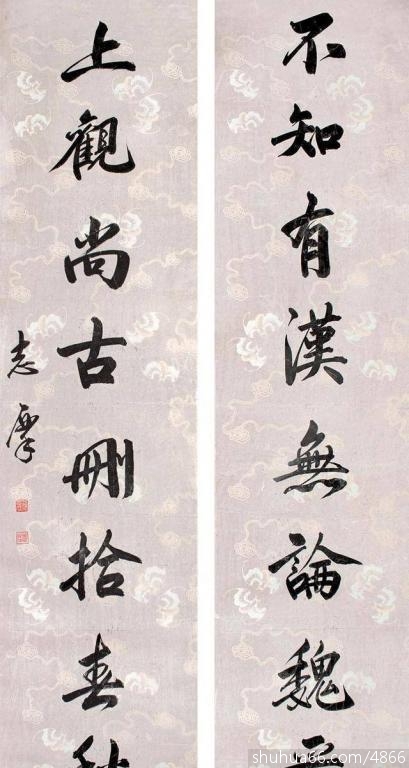 不知有漢無論魏
上觀尚古刪拾春秋
志摩
shuhua66.com/4866